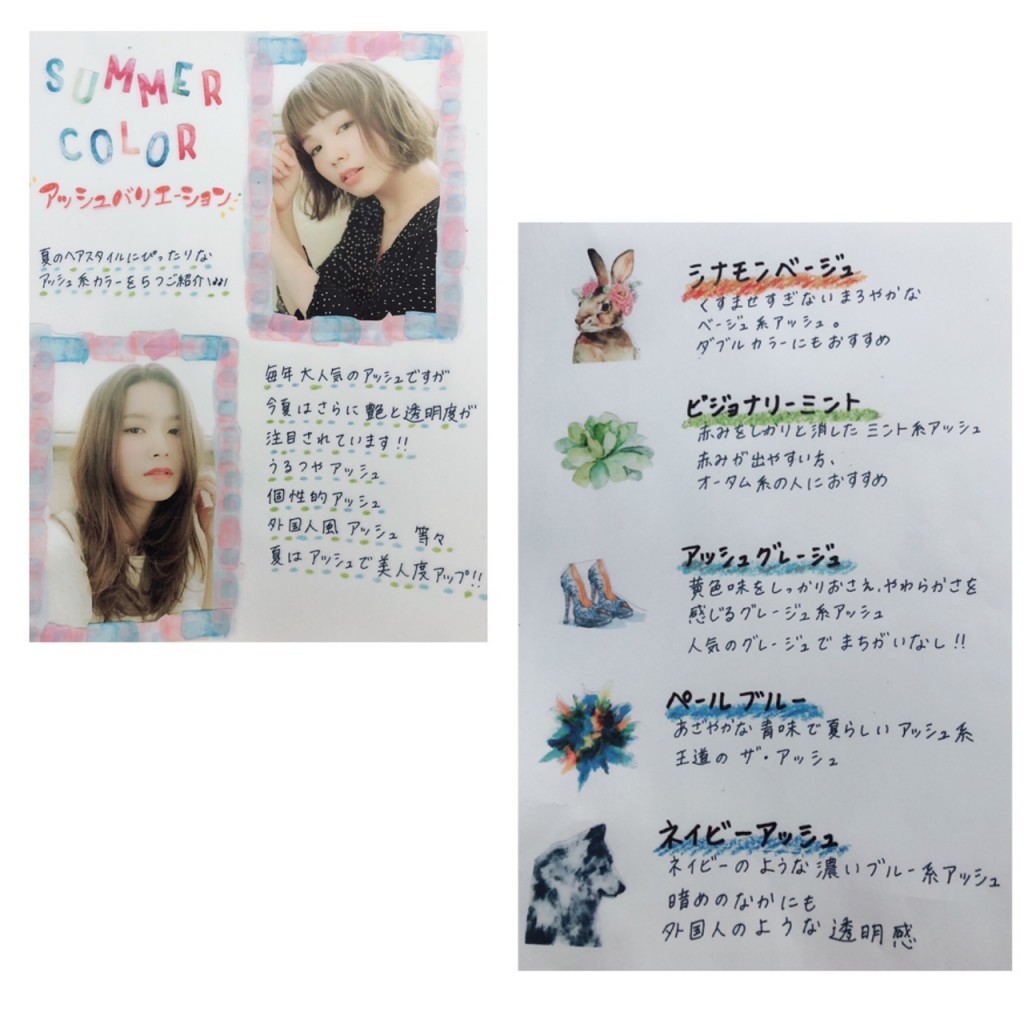 SUMMER
COLOR
アッシュバリエーション
夏のヘアスタイルにぴったりな
アッシュ系カラーを5つご紹介
毎年大人気のアッシュですが
今夏はさらに艶と透明度が
注目されています!!
うるつやアッシュ
個性的アッシュ
外国人風アッシュ 等々
夏はアッシュで美人度アップ!!
シナモンベージュ
くすませすぎないまろやかな
ベージュ系アッシュ。
ダブルカラーにもおすすめ
ビジョナリーミント
赤みをしかりと消したミント系アッシュ
赤みが出やすい方、
オータム系の人におすすめ
アッシュグレージュ
黄色味をしっかりおさえ、やわらかさを
感じるグレージュ系アッシュ
人気のグレージュでまちがいなし!!
ペールブルー
あざやかな青味で夏らしいアッシュ系
王道のザ・アッシュ
ネイビーアッシュ
ネイビーのような濃いブルー系アッシュ
暗めのなかにも
外国人のような透明感